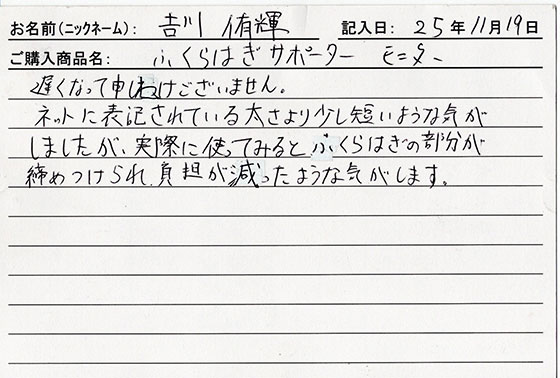 お名前(ニックネーム): 吉川 侑輝 記入日: 25年11月19日
ご購入商品名: ふくらはぎサポーター モニター
遅くなって申しわけございません。
ネットに表記されている太さより少し短いような気が
しましたが、実際に使ってみると、ふくらはぎの部分が
締めつけられ、負担が減ったような気がします。